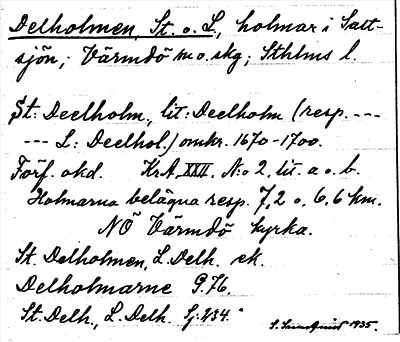 Delholmen, St. o. L., holmar i Salt-
sjön; Värmdö m o. skg; Sthlms l.
St: Deelholm, lit: Deelholm (resp. ---
--- L: Deelhol.) omkr. 1670-1700.
Förf. okd. KrA, XXII. N:o 2, lit. a o. b.
Holmarna belägna resp. 7,2 o. 6,6 km.
NÖ Värmdö kyrka.
St. Delholmen, L. Delh. ek.
Delholmarne G.76,
St. Delh., L. Delh. Sj: 234.
1935.